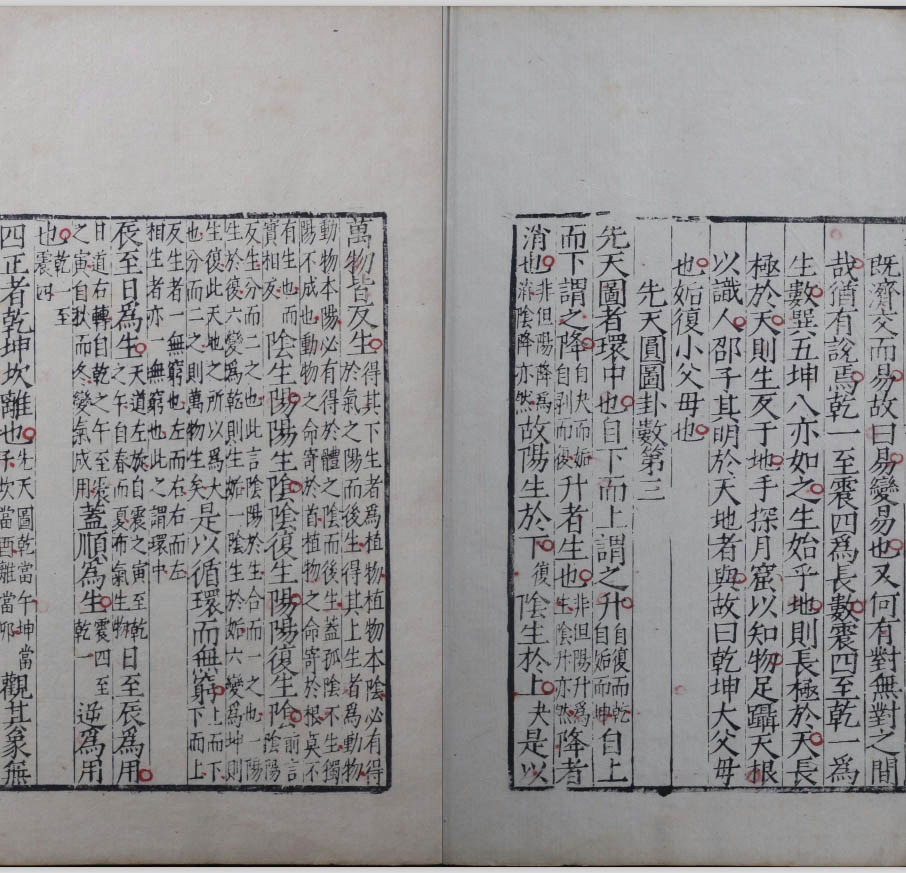 既濟交而易故曰易變易也又何有對無對之間
哉猶有說焉乾一至震四為長數震四至乾一為
生數巽五坤八亦如之生始乎地則長極於天長
極於天則生反于地手探月窟以知物足躡天根
以識人邵子其明於天地者與故曰乾坤大父母
也姤復小父母也
先天圓圖卦數第三
先天圖者環中也自下而上謂之升自復而乾自姤而坤自上
而下謂之降自夬而姤自剥而復升者生也非但陽升為生陰升亦然降者
消也非但陽降為消陰降亦然故陽生於下復陰生於上夬是以
萬物皆反生得其下生者為植物植物本陰必有得於氣之陽而後生得其上生者為動物
動物本陽必有得於體之陰而後生蓋孤陰不生獨陽不成也動物之命寄於首植物之命寄於根眞不
有生也實相反陰生陽陽生陰陰復生陽陽復生陰前言陰陽
反生分而二之也此言陰陽於生合而一之也一陽生於復六變為乾則生姤一陰生於姤六變為坤則
生復此天地之所以為大也分而二之則萬物生矣是以循環而無窮上而下下而上
反生者一無窮也左而右右而左相生者亦一無窮也此之謂環中
辰至日為生天道左旋自震之寅至乾之午自春而夏布氣生物日至辰為用
日道右轉自乾之午至震之寅自秋而冬變氣成用蓋順為生震四至乾一逆為用
也乾一至震四
四正者乾坤坎離也先天圖乾當午坤當子坎當酉離當卯觀其象無